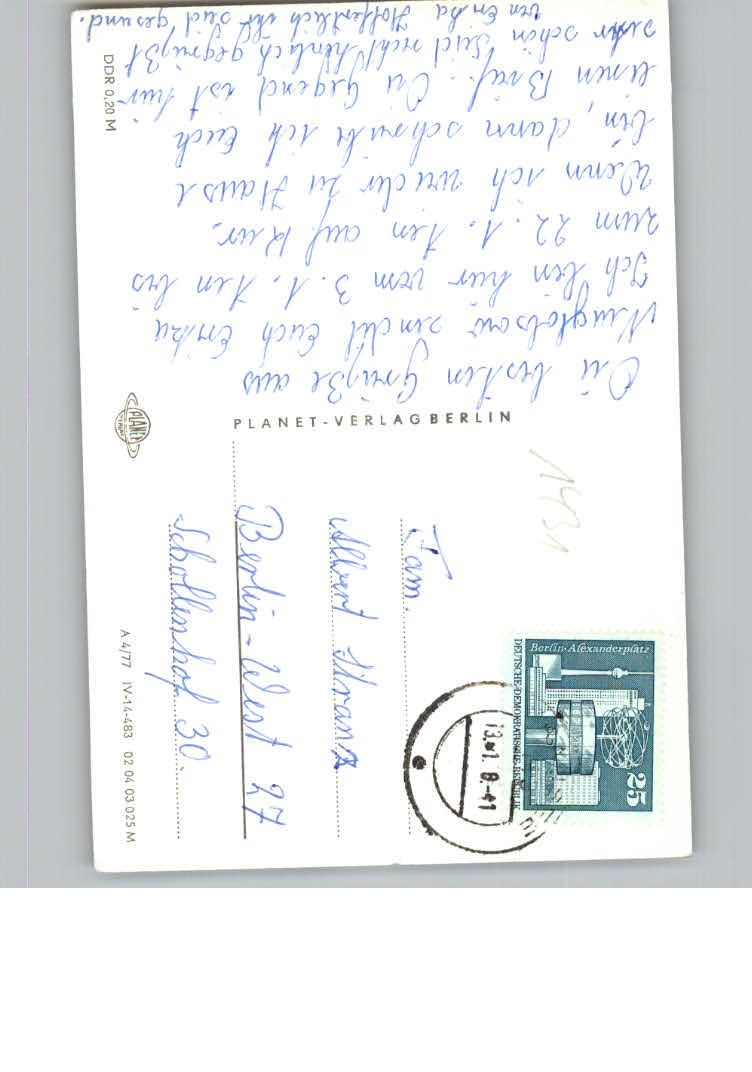 Die besten Grüße aus
Neuglobsow sendet Euch Erika
Ich bin hier vom 3.1.ten bis
zum 22.1.ten auf Kur.
Wenn ich wieder zu Hause
bin, dann schreibe ich Euch
einen Brief. Die Gegend ist hier
sehr schön Seid recht herzlich gegrüßt
von Erika Hoffentlich ihr seid gesund.
DDR 0,20 M
PLANET-VERLAG BERLIN
PLANET
VERLAG
1431
Fam.
Albert Strans
Berlin-West 27
Schollenhof 30.
A 4/77 IV-14-483 02 04 03 025 M
Berlin·Alexanderplatz
DEUTSCHE·DEMOKRATISCHE·REPUBLIK
25
13.-1. 8.-41